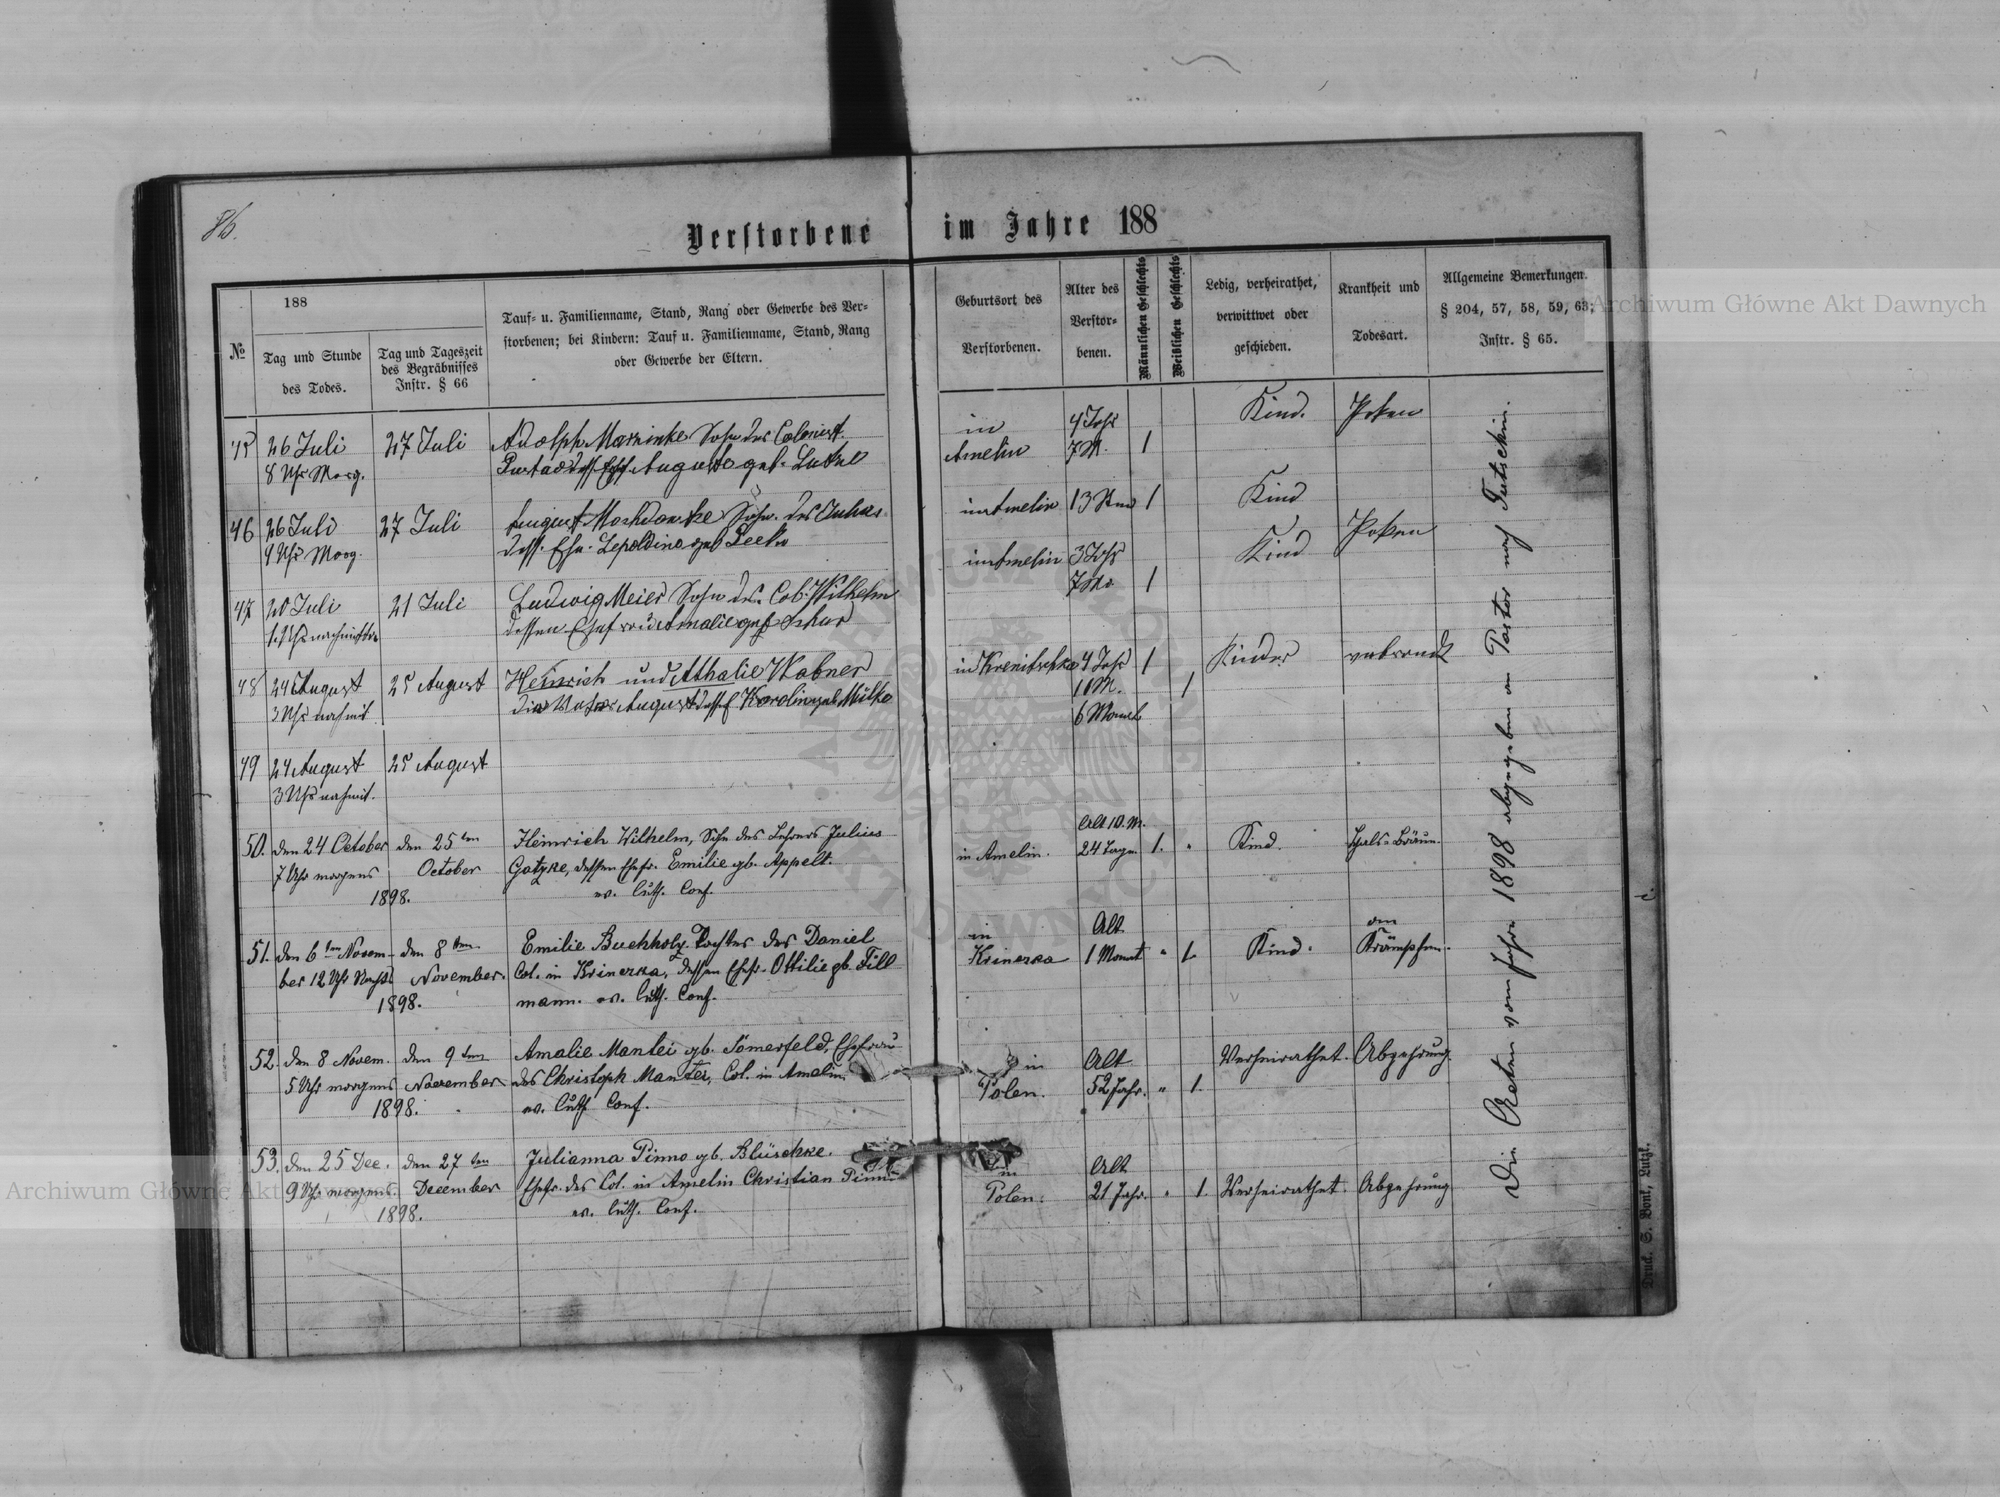 86.
Verstorbene im Jahre 188
№
188
Tag und Stunde
des Todes.
Tag und Tageszeit
des Begräbnisses
Instr. § 66
Tauf- u. Familienname, Stand, Rang oder Gewerbe des Ver-
storbenen; bei Kindern: Tauf u. Familienname, Stand, Rang
oder Gewerbe der Eltern.
Geburtsort des
Verstorbenen.
Alter des
Verstor-
benen.
Männlichen Geschlechts
Weiblichen Geschlechts
Ledig, verheirathet,
verwittwet oder
geschieden.
Krankheit und
Todesart.
Allgemeine Bemerkungen.
§ 204, 57, 58, 59, 63;
Instr. § 65.
45 26 Juli 27 Juli Adolph Marzinke Sohn des Colonist in 4 Jahr Kind. Poken
8 Uhr Morg. Gustav dess. Ehef. Auguste geb. Amelin 7 M. 1
46 26 Juli 27 Juli August Sohn des in Amelin 13 1 Kind
4 Uhr Morg. dess. Ehe. geb in Amelin 3 Jahr Kind Poken
7 Mo 1
47 20 Juli 21 Juli Ludwig Meier Sohn des Col. Wilhelm
dessen Ehefrau Amalie geb
48 24 August 25 August Heinrich und Athalie Wabner in 4 Jahr 1 Kinder
3 Uhr nachmit August dess Karolin geb 11 M. 1
6 Monat
49 24 August 25 August
3 Uhr nachmit.
50. den 24 October den 25 ten Heinrich Wilhelm, Sohn des Lehrers Julius Alt 10. M.
7 Uhr morgens October Gatzke, dessen Ehefr. Emilie gb. Appelt. in Amelin. 24 Tage. 1. " Kind. Hals-Bräun.
1898. ev. luth. Conf.
51. den 6 ten Novem- den 8 ten Emilie Buchholz Tochter des Daniel in Alt Kind. an
ber 12 Uhr Nachts November. Col. in Krinerka, dessen Ehefr. Ottilie gb. Till Krinerka 1 Monat " 1. Krämpfen.
1898. mann. ev. luth. Conf.
52. den 8 Novem. den 9 ten Amalie Mantei gb. Sömerfeld, Ehefrau in Alt Verheirathet. Abzehrung.
5 Uhr morgens November des Christoph Mantei, Col. in Amelin. Polen. 52 Jahr. " 1.
1898. ev. luth Conf.
53. den 25 Dec. den 27 ten Julianna Pinno gb. Blüschke. in Alt
9 Uhr morgens. December Ehefr. des Col. in Amelin Christian Pinno Polen. 21 Jahr. " 1. Verheirathet. Abzehrung
1898. ev. luth. Conf.
Die Acten vom Jahre 1898 abgegeben an Pastor nach Tutschin.
Druck. S. Bonk, Lutzk.
Archiwum Główne Akt Dawnych
Archiwum Główne Akt Dawnych